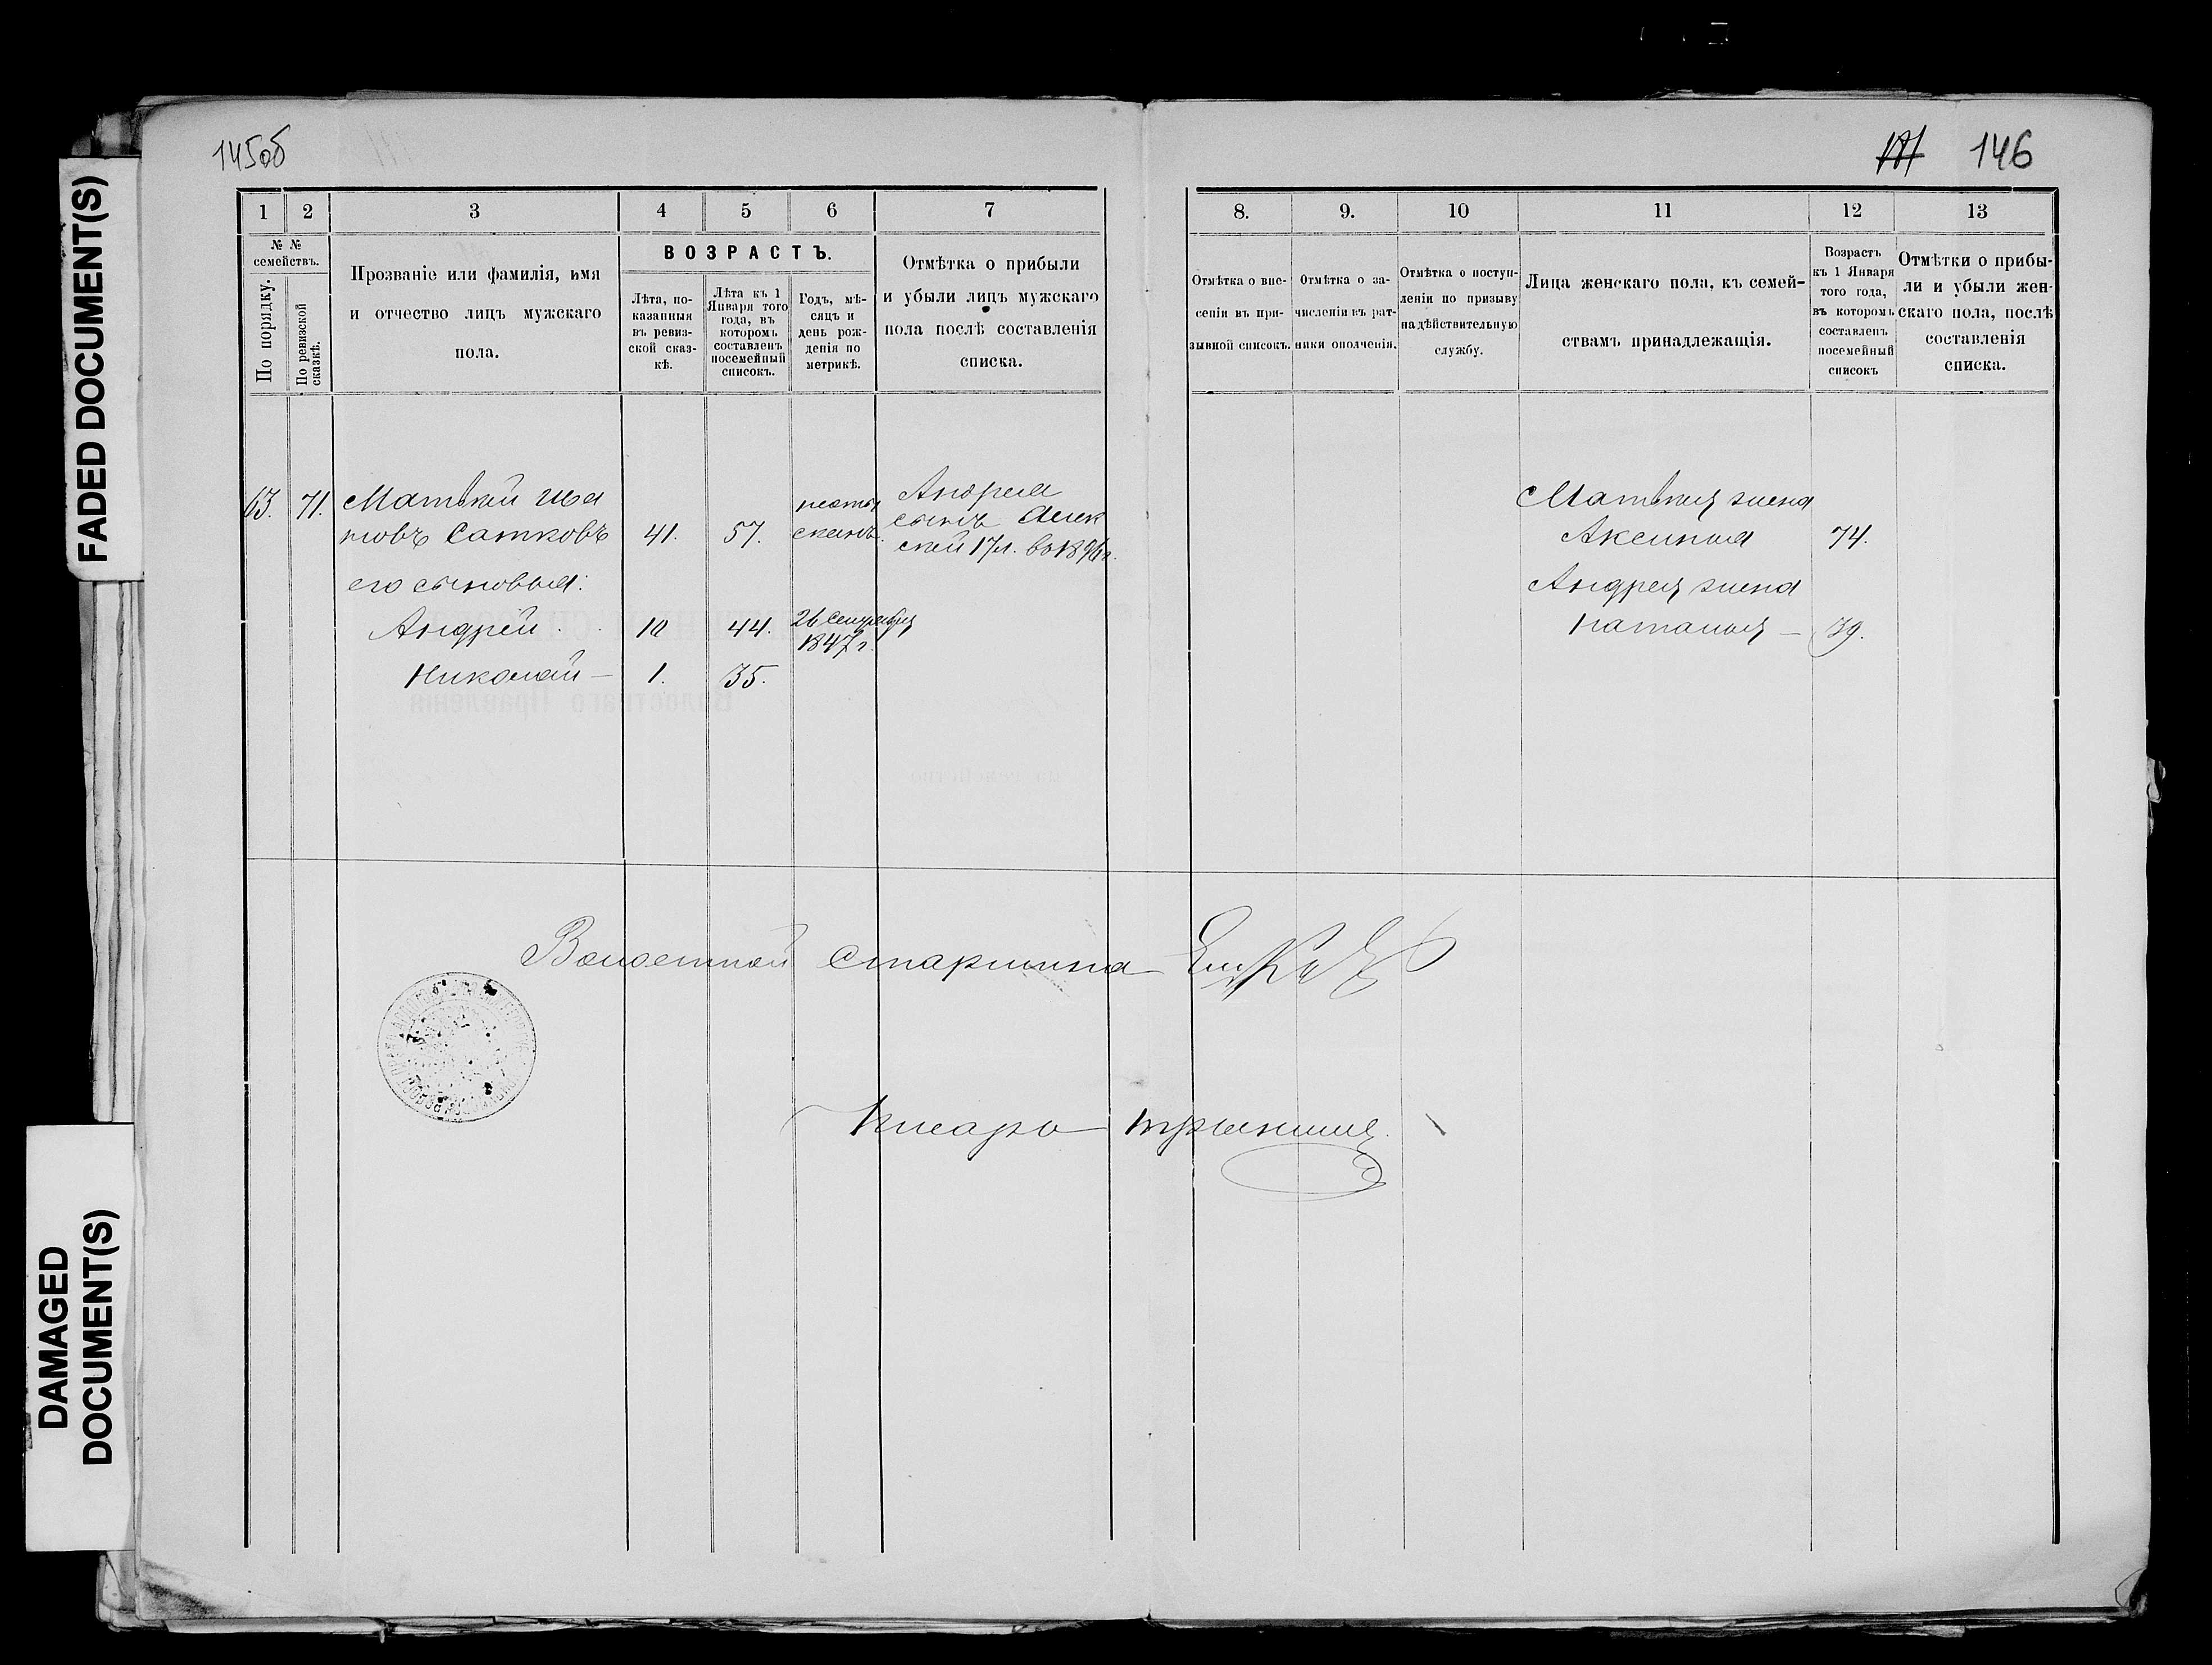 145об
146
FADED DOCUMENT(S)
DAMAGED
DOCUMENT(S)
1 2 3 4 5 6 7
8. 9. 10 11 12 13
№ №
семействъ.
По порядку.
По ревизской
сказкѣ.
Прозваніе или фамилія, имя
и отчество лицъ мужскаго
пола.
ВОЗРАСТЪ.
Лѣта, по-
казанныя
въ ревиз-
ской сказ-
кѣ.
Лѣта къ 1
Января того
года, въ
которомъ
составленъ
посемейный
списокъ.
Годъ, мѣ-
сяцъ и
день рож-
денія по
метрикѣ.
Отмѣтка о прибыли
и убыли лицъ мужскаго
пола послѣ составленія
списка.
Отмѣтка о вне-
сеніи въ при-
зывной списокъ.
Отмѣтка о за-
численіи въ рат-
ники ополченія.
Отмѣтка о поступ-
леніи по призыву
на дѣйствительную
службу.
Лица женскаго пола, къ семей-
ствамъ принадлежащія.
Возрастъ
къ 1 Января
того года,
въ которомъ
составленъ
посемейный
списокъ
Отмѣтки о прибы-
ли и убыли жен-
скаго пола, послѣ
составленія
списка.
63. 71. Матвѣй Ива
новъ Сатковъ 41. 57.
его сыновья:
Андрей 10 44. 26 Сентября
1847 г.
Николай — 1. 35.
Андрея
сынъ Алек
сѣй 17 л. въ
Матвѣя жена
Аксинья 74.
Андрея жена
Наталья — 39.
Волостной старшина
Писарь